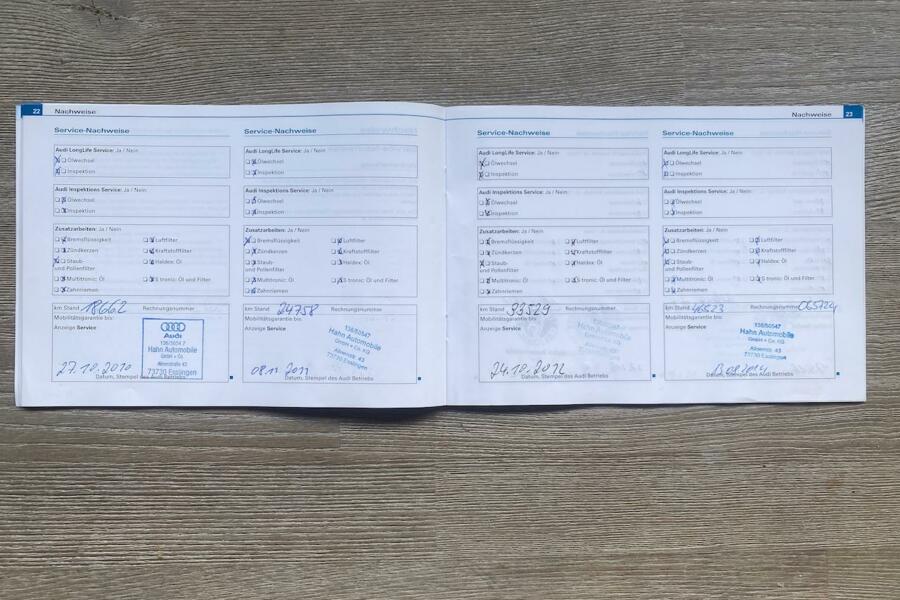 22 Nachweise
Service-Nachweise
Audi LongLife Service: Ja / Nein
Ölwechsel
Inspektion
Audi Inspektions Service: Ja / Nein
Ölwechsel
Inspektion
Zusatzarbeiten: Ja / Nein
Bremsflüssigkeit Luftfilter
Zündkerzen Kraftstofffilter
Staub- Haldex: Öl
und Pollenfilter
Multitronic: Öl S tronic: Öl und Filter
Zahnriemen
km Stand 18662 Rechnungsnummer
Mobilitätsgarantie bis:
Anzeige Service
Audi
Hahn Automobile
GmbH + Co. KG
73730 Esslingen
27.10.2010
Datum, Stempel des Audi Betriebs
Service-Nachweise
Audi LongLife Service: Ja / Nein
Ölwechsel
Inspektion
Audi Inspektions Service: Ja / Nein
Ölwechsel
Inspektion
Zusatzarbeiten: Ja / Nein
Bremsflüssigkeit Luftfilter
Zündkerzen Kraftstofffilter
Staub- Haldex: Öl
und Pollenfilter
Multitronic: Öl S tronic: Öl und Filter
Zahnriemen
km Stand 24758 Rechnungsnummer
Mobilitätsgarantie bis:
Anzeige Service
136/50547
Hahn Automobile
GmbH + Co. KG
73730 Esslingen
08.11.2011
Datum, Stempel des Audi Betriebs
Nachweise 23
Service-Nachweise
Audi LongLife Service: Ja / Nein
Ölwechsel
Inspektion
Audi Inspektions Service: Ja / Nein
Ölwechsel
Inspektion
Zusatzarbeiten: Ja / Nein
Bremsflüssigkeit Luftfilter
Zündkerzen Kraftstofffilter
Staub- Haldex: Öl
und Pollenfilter
Multitronic: Öl S tronic: Öl und Filter
Zahnriemen
km Stand 33529 Rechnungsnummer
Mobilitätsgarantie bis:
Anzeige Service
24.10.2012
Datum, Stempel des Audi Betriebs
Service-Nachweise
Audi LongLife Service: Ja / Nein
Ölwechsel
Inspektion
Audi Inspektions Service: Ja / Nein
Ölwechsel
Inspektion
Zusatzarbeiten: Ja / Nein
Bremsflüssigkeit Luftfilter
Zündkerzen Kraftstofffilter
Staub- Haldex: Öl
und Pollenfilter
Multitronic: Öl S tronic: Öl und Filter
Zahnriemen
km Stand Rechnungsnummer
Mobilitätsgarantie bis:
Anzeige Service
136/50547
Hahn Automobile
GmbH + Co. KG
73730 Esslingen
Datum, Stempel des Audi Betriebs